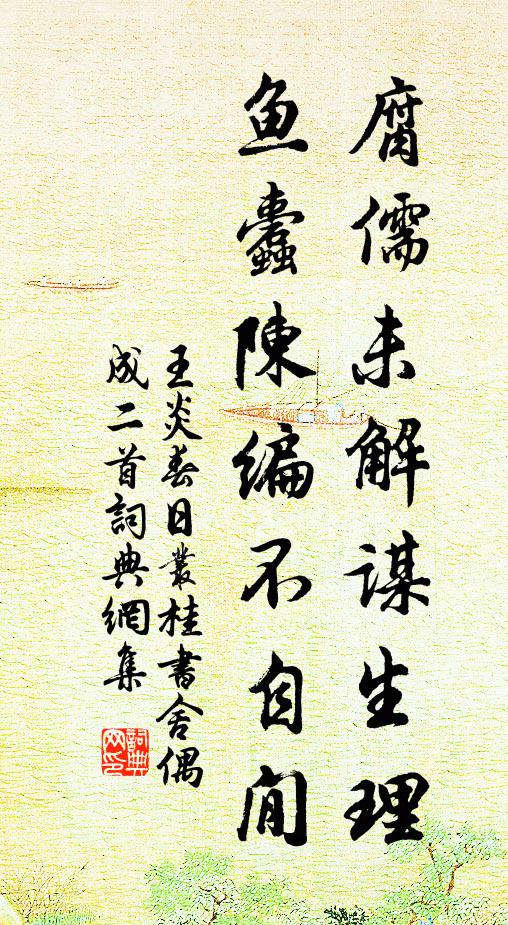 腐儒未解謀生理
魚蠹陳編不自閒
王炎春日叢桂書舍偶
成二首詞典網集
詞典
网印